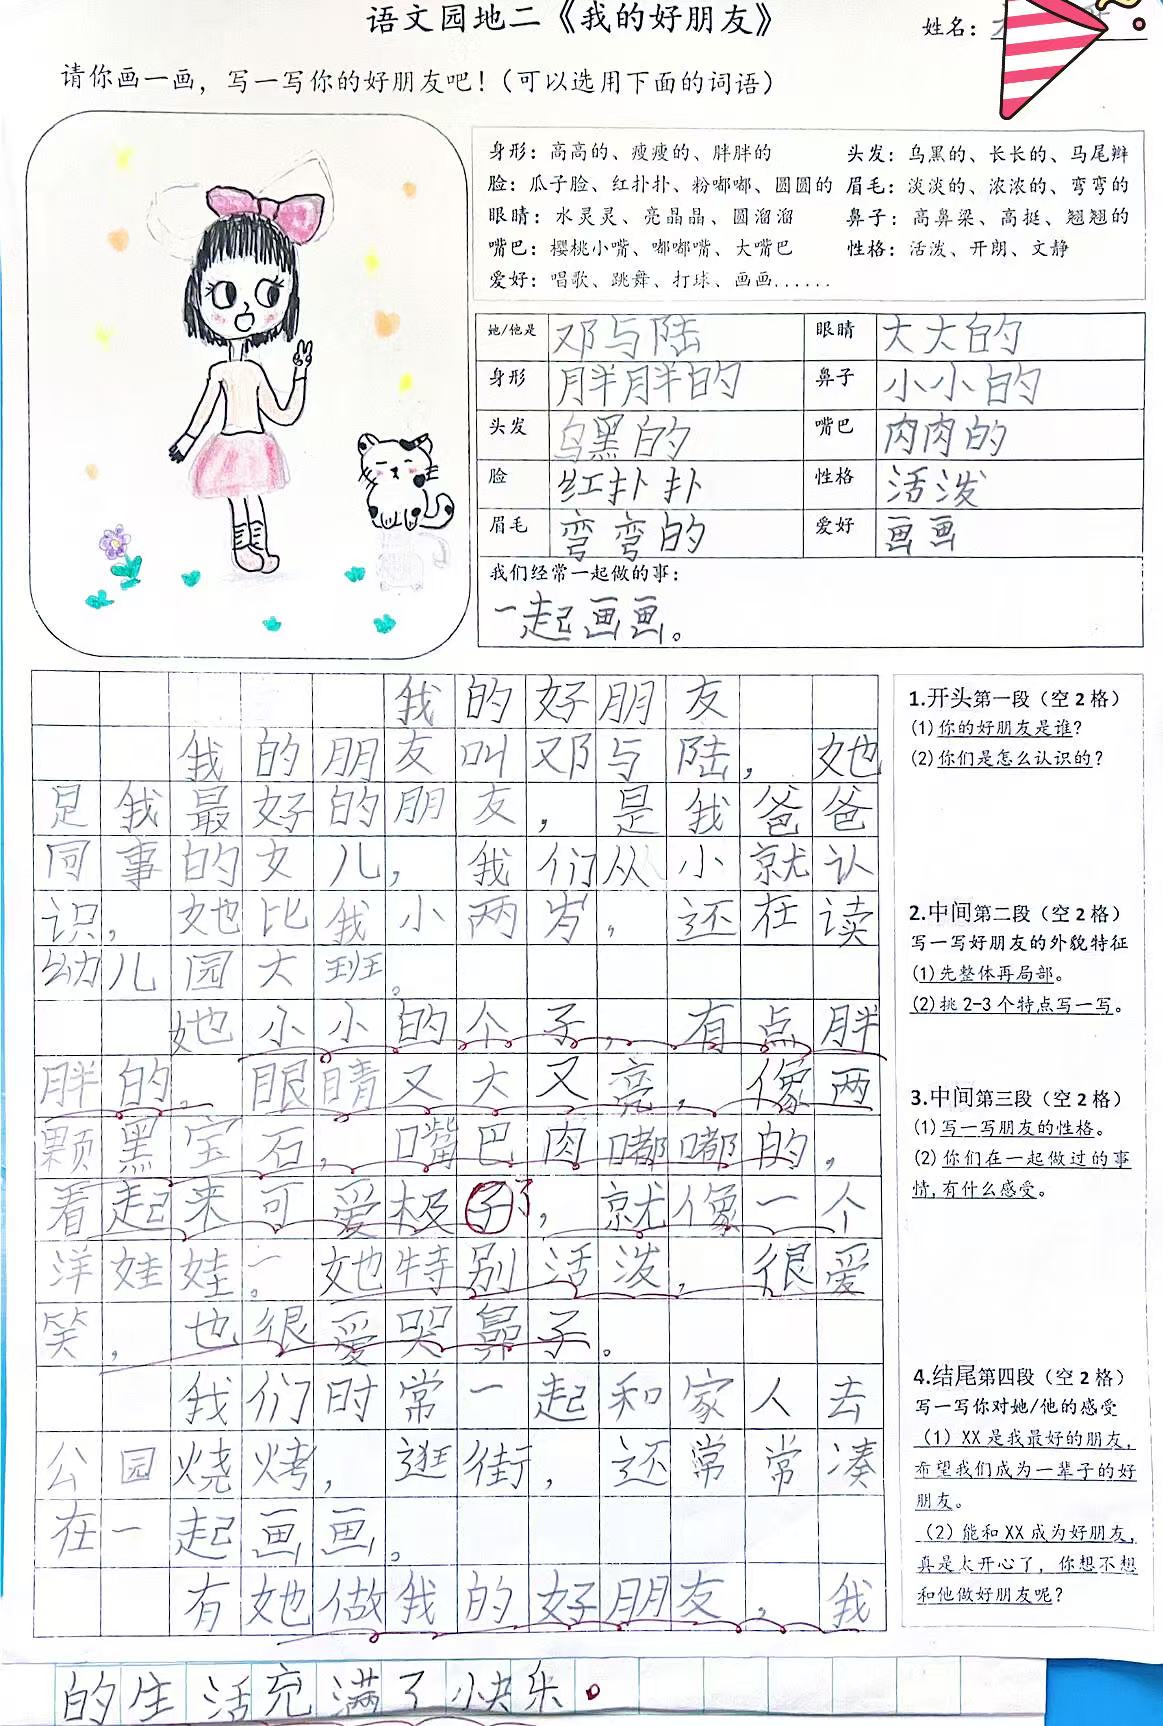 语文园地二《我的好朋友》
姓名：
请你画一画，写一写你的好朋友吧！（可以选用下面的词语）
身形：高高的、瘦瘦的、胖胖的 头发：乌黑的、长长的、马尾辫
脸：瓜子脸、红扑扑、粉嘟嘟、圆圆的 眉毛：淡淡的、浓浓的、弯弯的
眼睛：水灵灵、亮晶晶、圆溜溜 鼻子：高鼻梁、高挺、翘翘的
嘴巴：樱桃小嘴、嘟嘟嘴、大嘴巴 性格：活泼、开朗、文静
爱好：唱歌、跳舞、打球、画画......
她/他是 邓与陆 眼睛 大大的
身形 胖胖的 鼻子 小小的
头发 乌黑的 嘴巴 肉肉的
脸 红扑扑 性格 活泼
眉毛 弯弯的 爱好 画画
我们经常一起做的事：
一起画画。
我的好朋友
我的朋友叫邓与陆，她
是我最好的朋友，是我爸爸
同事的女儿，我们从小就认
识，她比我小两岁，还在读
幼儿园大班。
她小小的个子，有点胖
胖的，眼睛又大又亮，像两
颗黑宝石，嘴巴肉嘟嘟的，
看起来可爱极子了，就像一个
洋娃娃。她特别活泼，很爱
笑，也很爱哭鼻子。
我们时常一起和家人去
公园烧烤，逛街，还常常凑
在一起画画。
有她做我的好朋友，我
的生活充满了快乐。
1.开头第一段（空2格）
(1)你的好朋友是谁？
(2)你们是怎么认识的？
2.中间第二段（空2格）
写一写好朋友的外貌特征
(1)先整体再局部。
(2)挑2-3个特点写一写。
3.中间第三段（空2格）
(1)写一写朋友的性格。
(2)你们在一起做过的事
情，有什么感受。
4.结尾第四段（空2格）
写一写你对她/他的感受
（1）XX是我最好的朋友，
希望我们成为一辈子的好
朋友。
（2）能和XX成为好朋友，
真是太开心了，你想不想
和他做好朋友呢？